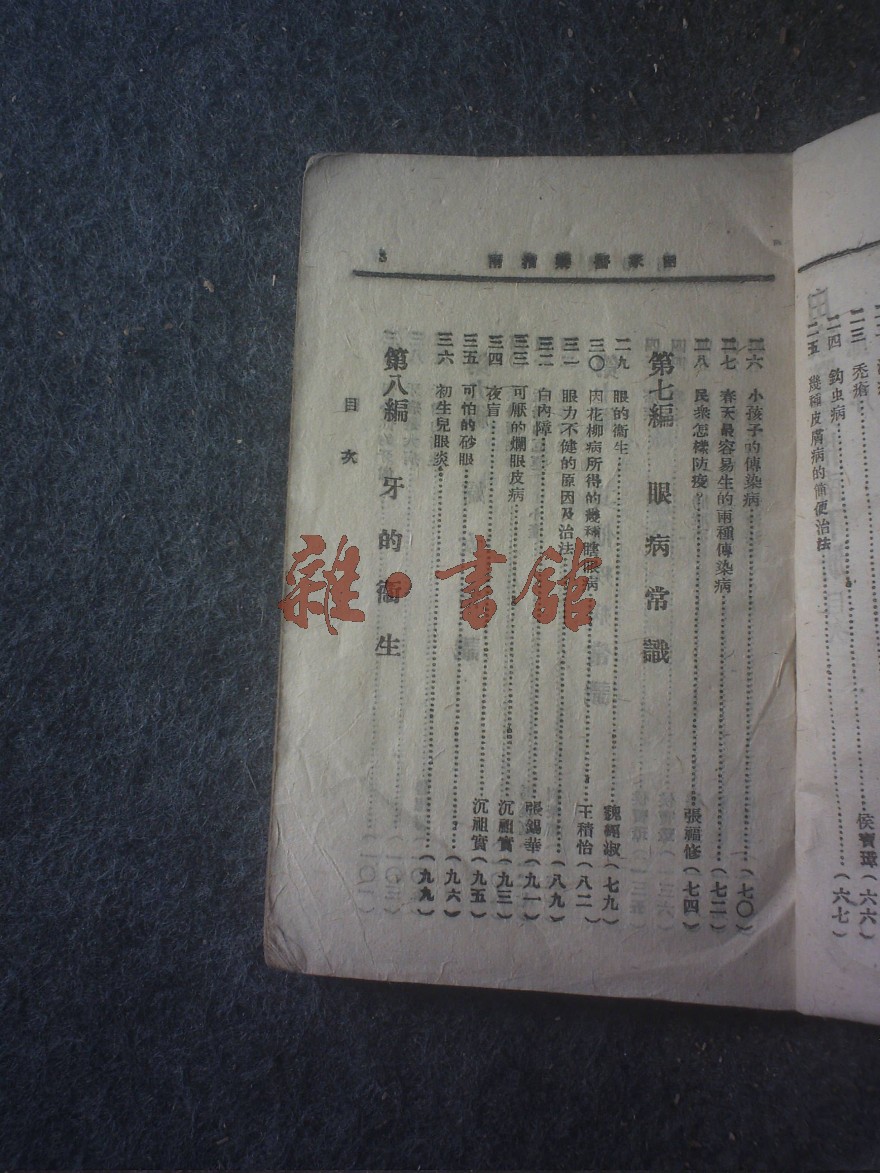 二三 禿瘡
二四 鈎虫病……侯寶璋(六六)
二五 幾種皮膚病的簡便治法……(六七)
家醫藥指南
8
二六 小孩子的傳染病……(七〇)
二七 春天最容易生的兩種傳染病……(七二)
二八 民衆怎樣防疫?……張福修(七四)
第七編 眼病常識
二九 眼的衛生……淑(七九)
三〇 因花柳病所得的幾種瞎眼病……王積怡(八二)
三一 眼力不健的原因及治法……(八九)
三二 白內障……張錫華(九一)
三三 可厭的爛眼皮病……沉祖實(九三)
三四 夜盲……沉祖實(九五)
三五 可怕的砂眼……(九六)
三六 初生兒眼炎……(九九)
第八編 牙的衛生
目次
雜·書館